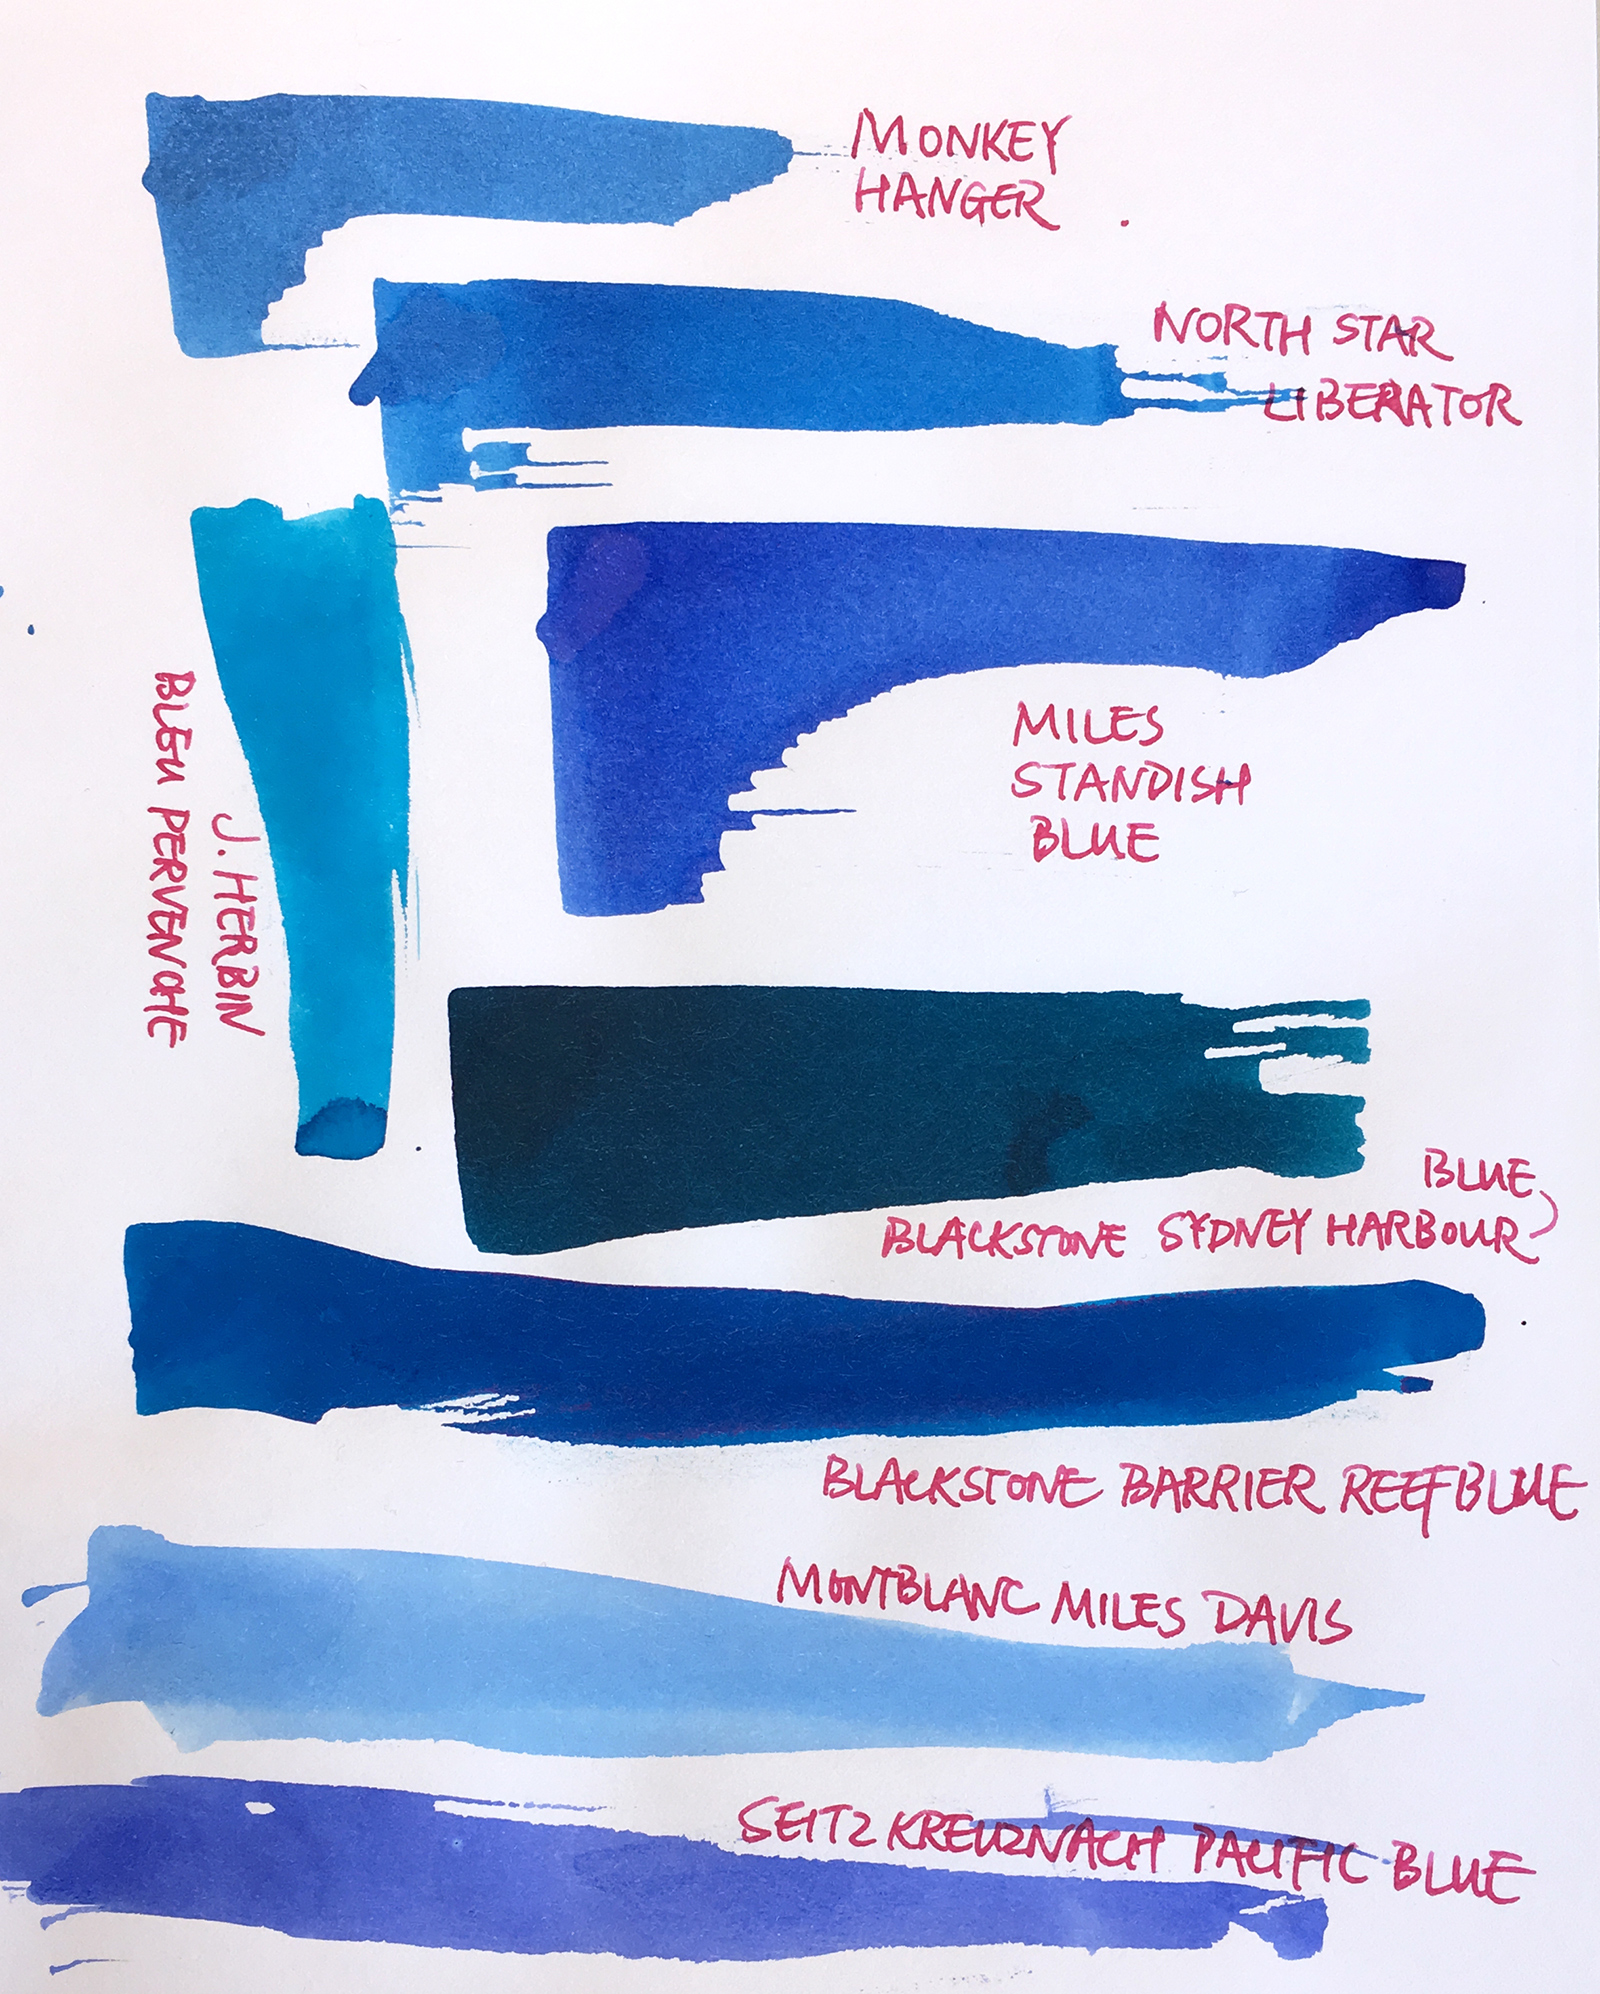 MONKEY
HANGER
NORTH STAR
LIBERATOR
J. HERBIN
BLEU PERVENCHE
MILES
STANDISH
BLUE
BLUE
BLACKSTONE SYDNEY HARBOUR
BLACKSTONE BARRIER REEF BLUE
MONTBLANC MILES DAVIS
SEITZ KREUZNACH PACIFIC BLUE